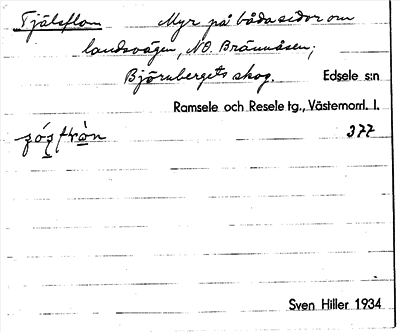 Tjälsflon Myr på båda sidor om
landsvägen, NO. Brännåsen,
Björnbergets skog. Edsele s:n
Ramsele och Resele tg., Västernorrl. l.
377
Sven Hiller 1934